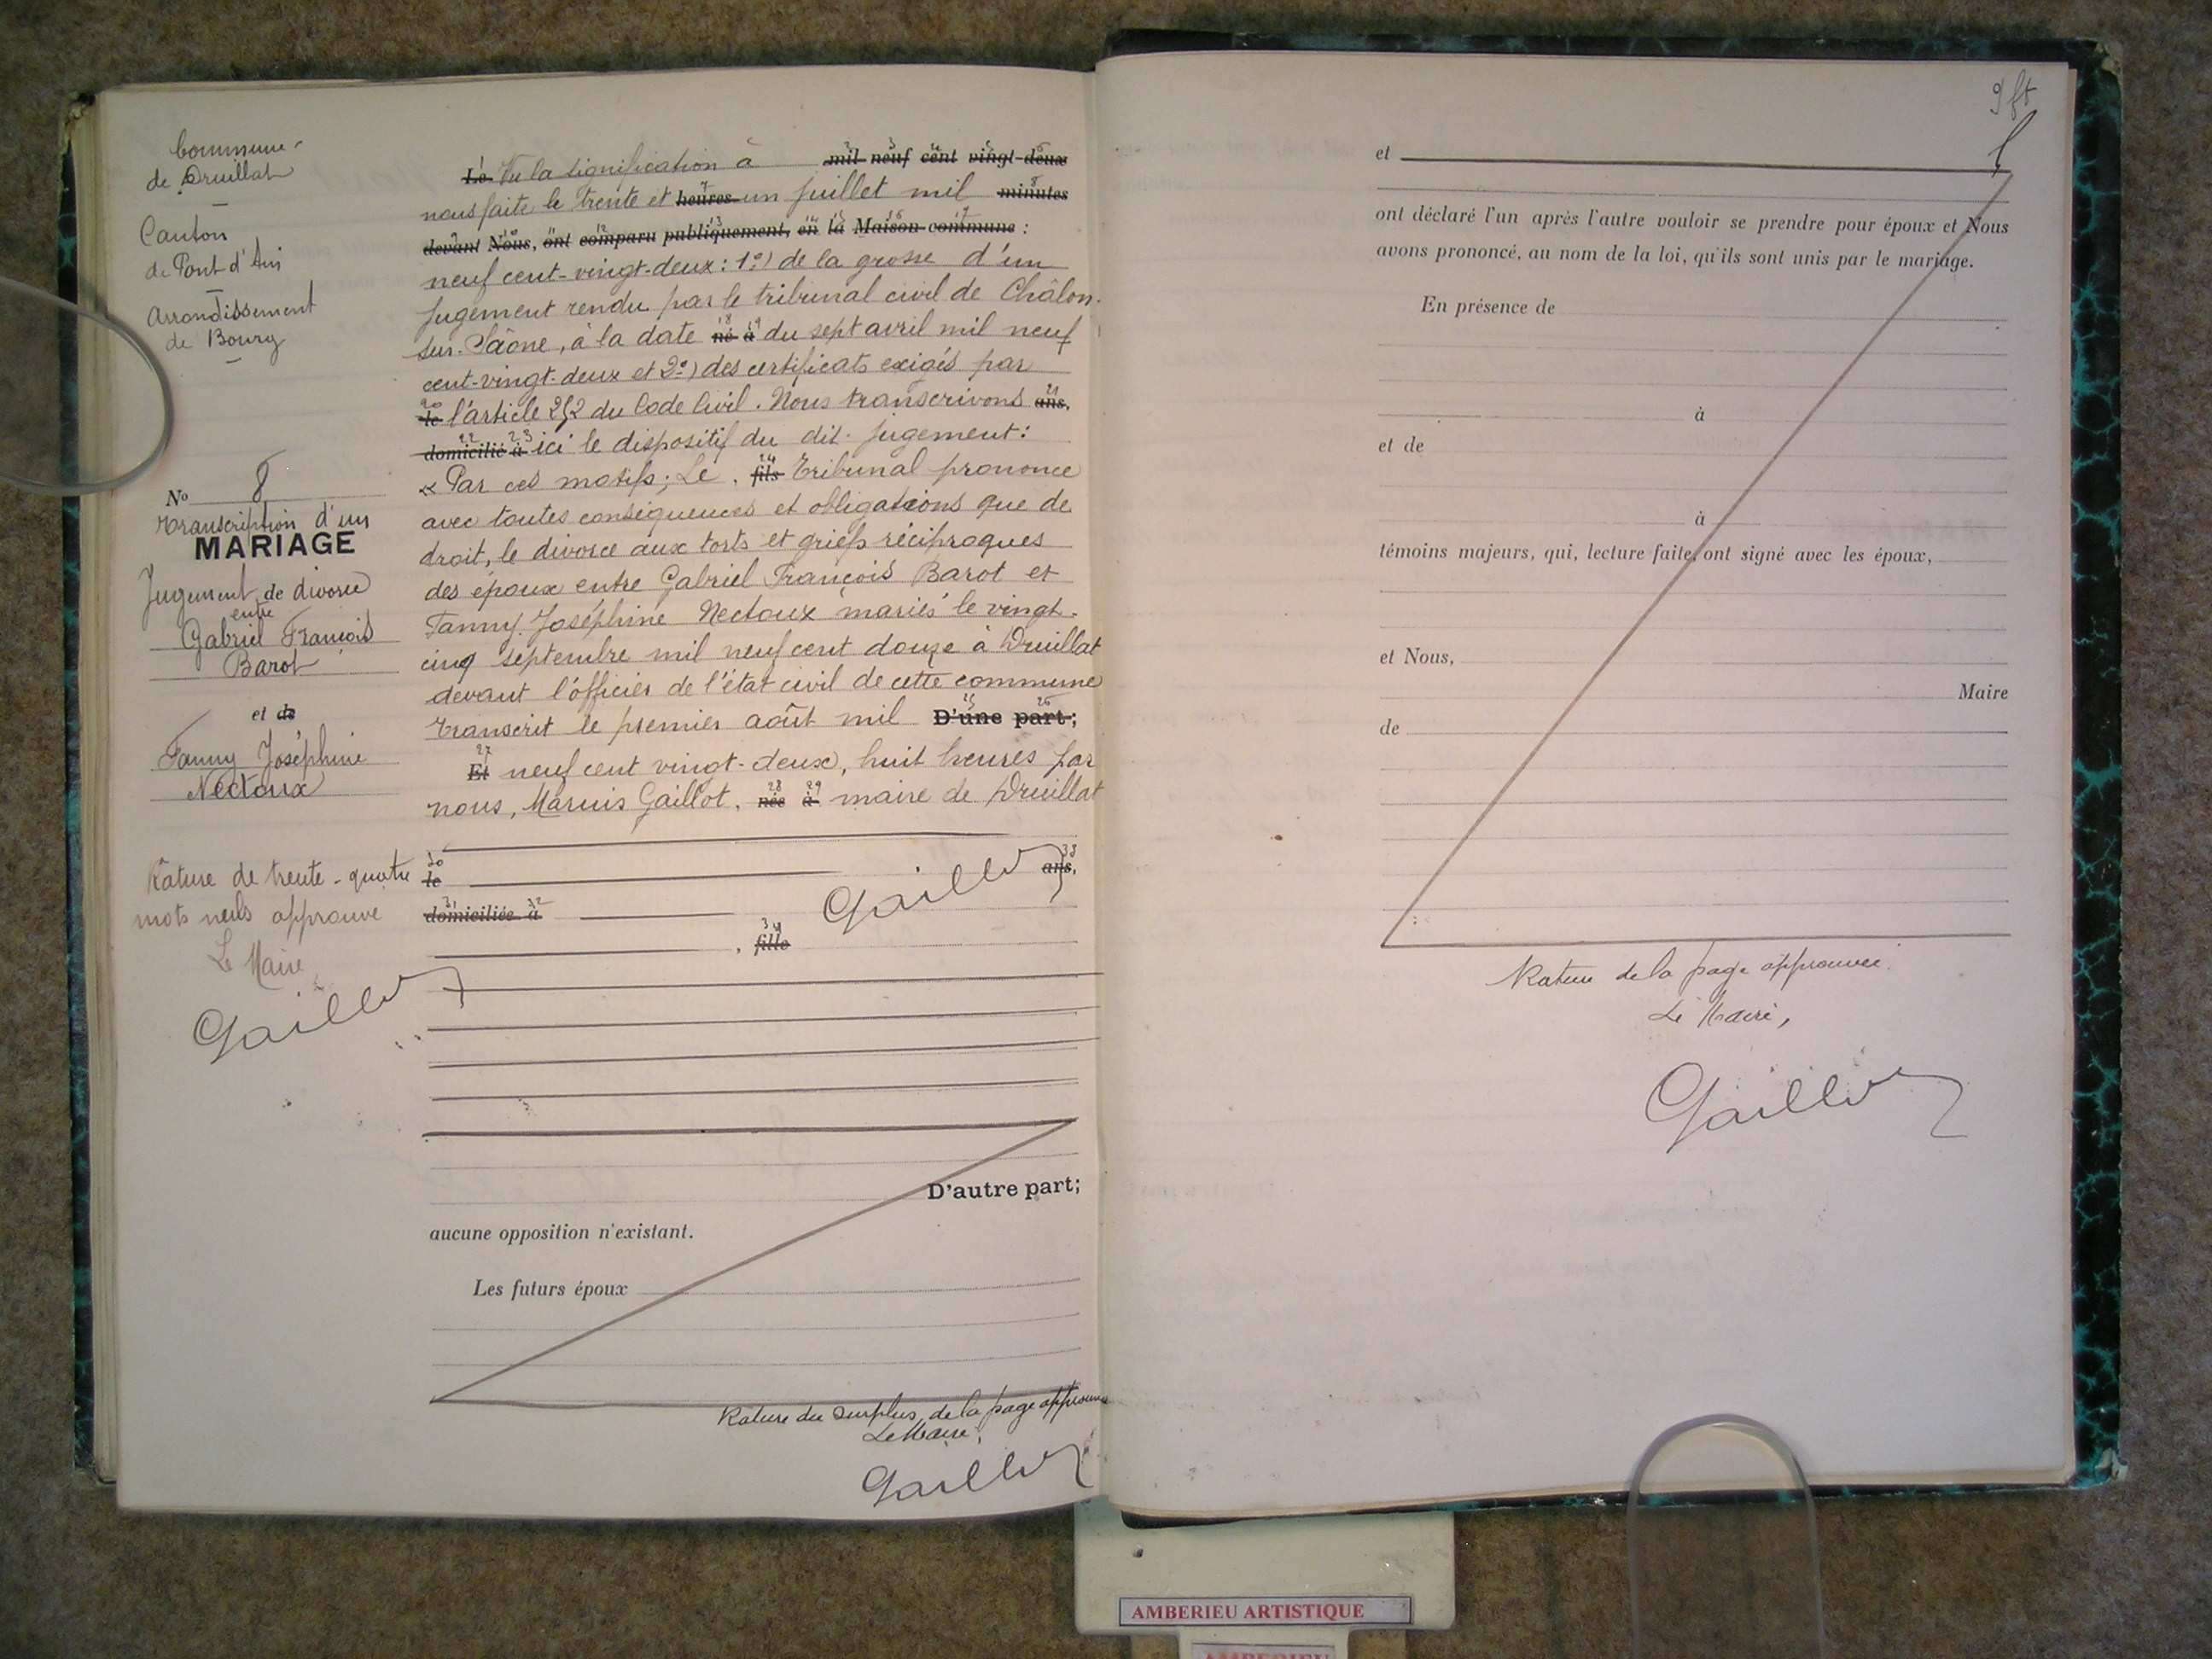 Commune
de Druillat
Canton
de Pont d'Ain
Arrondissement
de Bourg
No 8
Transcription d'un
MARIAGE
Jugement de divorce
entre
Gabriel François
Barot
et de
Fanny Joséphine
Nectoux
Rature de trente-quatre
mots nuls approuvé
Le Maire
Gaillot
Le Vu la signification à mil neuf cent vingt-deux
nous faite le trente et heures un juillet mil minutes
devant Nous, ont comparu publiquement, en la Maison commune :
neuf cent-vingt-deux : 1°) de la grosse d'un
jugement rendu par le tribunal civil de Châlon-
sur-Saône, à la date né à du sept avril mil neuf
cent-vingt-deux et 2°) des certificats exigés par
le l'article 252 du Code Civil. Nous transcrivons ans,
domicilié à ici le dispositif du dit jugement :
« Par ces motifs ; Le , fils Tribunal prononce
avec toutes conséquences et obligations que de
droit, le divorce aux torts et griefs réciproques
des époux entre Gabriel François Barot et
Fanny Joséphine Nectoux mariés le vingt-
cinq septembre mil neuf cent douze à Druillat
devant l'officier de l'état civil de cette commune
Transcrit le premier août mil D'une part ;
Et neuf cent vingt-deux, huit heures par
nous, Marius Gaillot, née à maire de Druillat
le ans,
domiciliée à Gaillot
, fille
D'autre part;
aucune opposition n'existant.
Les futurs époux
Rature du surplus de la page approuvée
Le Maire,
Gaillot
et
ont déclaré l'un après l'autre vouloir se prendre pour époux et Nous
avons prononcé, au nom de la loi, qu'ils sont unis par le mariage.
En présence de
à
et de
à
témoins majeurs, qui, lecture faite, ont signé avec les époux,
et Nous,
Maire
de
Rature de la page approuvée
Le Maire,
Gaillot
AMBERIEU ARTISTIQUE
AMBERIEU